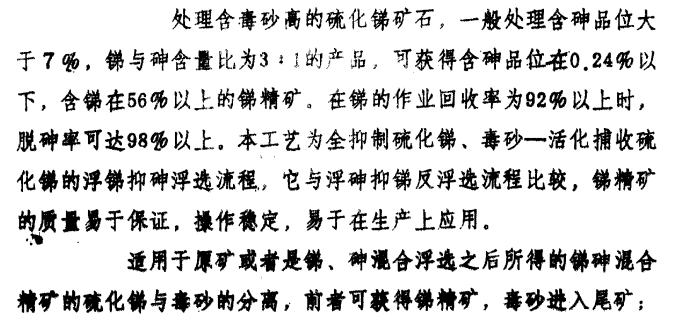 处理含毒砂高的硫化锑矿石，一般处理含砷品位大
于7%，锑与砷含量比为3：1的产品，可获得含砷品位在0.24%以
下，含锑在56%以上的锑精矿。在锑的作业回收率为92%以上时，
脱砷率可达98%以上。本工艺为全抑制硫化锑、毒砂—活化捕收硫
化锑的浮锑抑砷浮选流程，它与浮砷抑锑反浮选流程比较，锑精矿
的质量易于保证，操作稳定，易于在生产上应用。
适用于原矿或者是锑、砷混合浮选之后所得的锑砷混合
精矿的硫化锑与毒砂的分离，前者可获得锑精矿，毒砂进入尾矿；